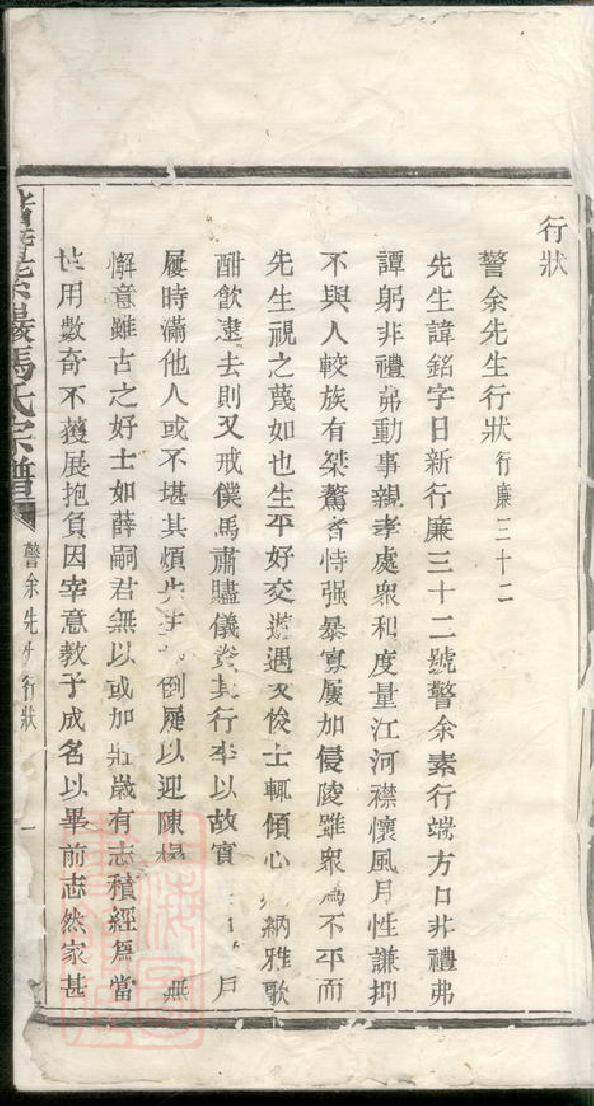 行狀
警余先生行狀行廉三十二
先生諱銘字日新行廉三十二號警余素行端方口非禮弗
譚躬非禮弗動事親孝處衆和度量江河襟懷風月性謙抑
不與人較族有桀驁者恃强暴寡屢加侵陵雖衆爲不平而
先生視之蔑如也生平好交遊遇文俊士輒傾心納雅歌
酣飲遠去則又戒僕馬肅贐儀資其行李以故賓戶
屨時滿他人或不堪其煩先生倒屣以迎陳榻無
懈意雖古之好士如薛嗣君無以或加壯歲有志積經爲當
世用數奇不獲展抱負因宰意教子成名以畢前志然家甚
馬氏宗譜
警余先生行狀
一